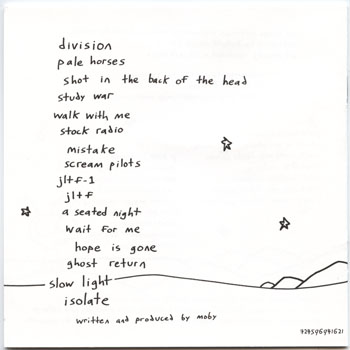 division
pale horses
shot in the back of the head
study war
walk with me
stock radio
mistake
scream pilots
jltf-1
jltf
a seated night
wait for me
hope is gone
ghost return
slow light
isolate
written and produced by moby